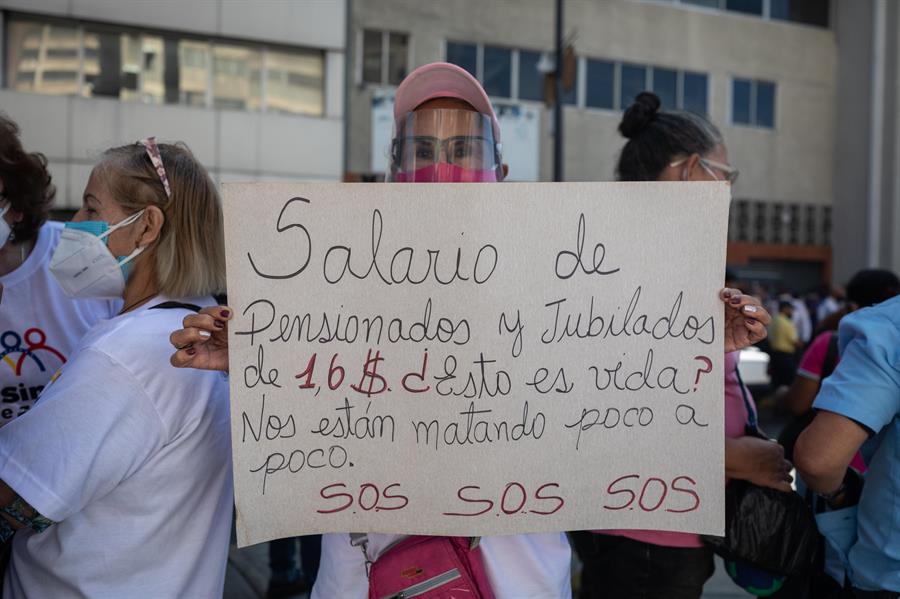 Salario de
Pensionados y Jubilados
de 1,6$. ¿Esto es vida?
Nos están matando poco a
poco.
S.O.S S.O.S SOS